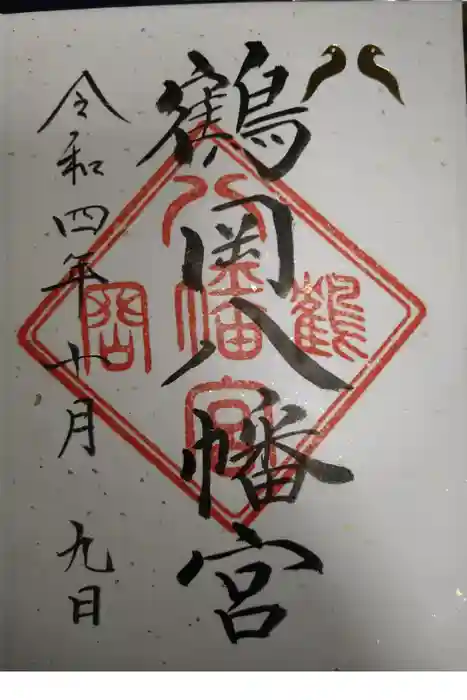 鶴岡八幡宮
令和四年十月九日
鶴岡八幡宮